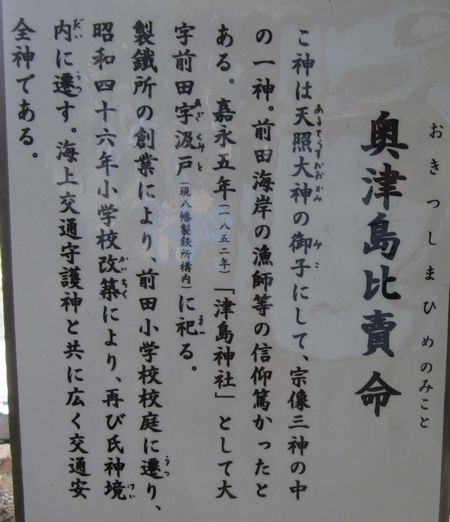 奥津島比賣命
おきつしまひめのみこと
こ神は天照大神の御子にして、宗像三神の中
あまてらすおおみかみ
みこ
の一神。前田海岸の漁師等の信仰篤かったと
ある。嘉永五年(一八五二年)「津島神社」として大
字前田字汲戸(現八幡製鉄所構内)に祀る。
あざくみと
まつ
製鐵所の創業により、前田小学校校庭に遷り、
うつ
昭和四十六年小学校改築により、再び氏神境
かいちく
けい
内に遷す。海上交通守護神と共に広く交通安
だい
うつ
全神である。